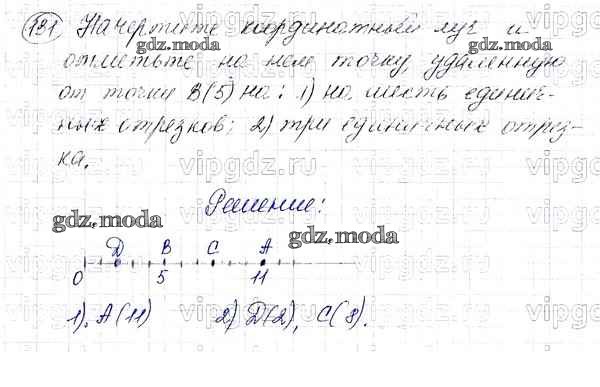 131 Начертите координатный луч и
отметьте на нем точку, удаленную
от точки B(5) на: 1) на шесть единич-
ных отрезков; 2) три единичных отрез-
ка.
Решение:
D B C A
0 5 11
1). A(11) 2) D(2), C(8).
gdz.moda
gdz.moda
gdz.moda
gdz.moda
vipgdz.ru